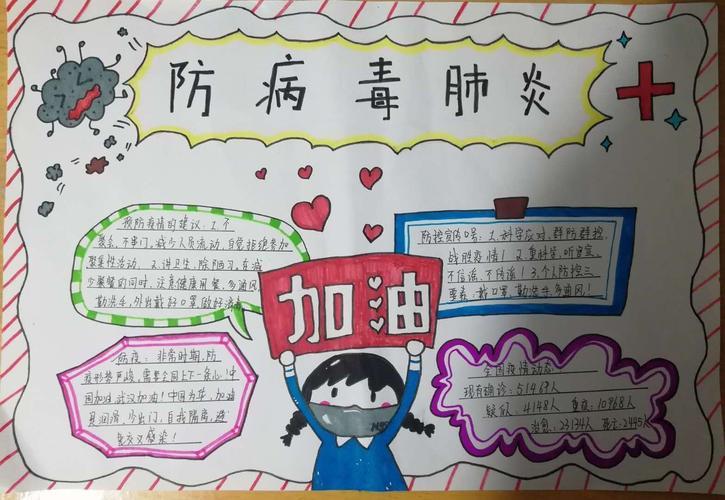 防病毒肺炎
预防疫情的建议：1.不
聚会，不串门，减少人员流动，自觉拒绝参加
聚集性活动。2.讲卫生，除陋习，在减
少聚餐的同时，注意健康用餐，多通风，
勤洗手，外出戴好口罩，做好消
防控宣传口号：1.科学应对，群防群控，
战胜疫情！2.重科学，听官宣，
不信谣，不传谣！3.个人防控三
要素：戴口罩，勤洗手，多通风！
加油
防疫：非常时期，防
疫形势严峻，需要全国上下一条心！中
国加油，武汉加油！中国力量，加油
少出门，自我隔离，避
免交叉感染！
全国疫情动态
现有确诊：51463人
疑似：4148人 重症：10968人
治愈：23134人 死亡：2445人
N95